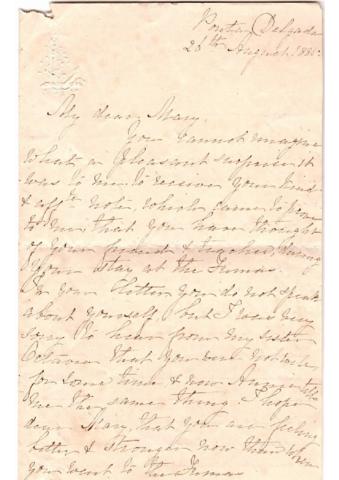 Ponta Delgada
26th August 188
My dear Mary,
You cannot imagine
what a pleasant surprise it
was to me to receive your kind
& afft note, which came to prove
to me that you have thought
of your friend & teacher, during
your stay at the Furnas.
In your letter you do not speak
about yourself, but I was very
sorry to hear from my sister
Octavia that you were not well
for some time & now Augusta tells
me the same thing. I hope
dear Mary, that you are feeling
better & stronger now than when
you went to the Furnas